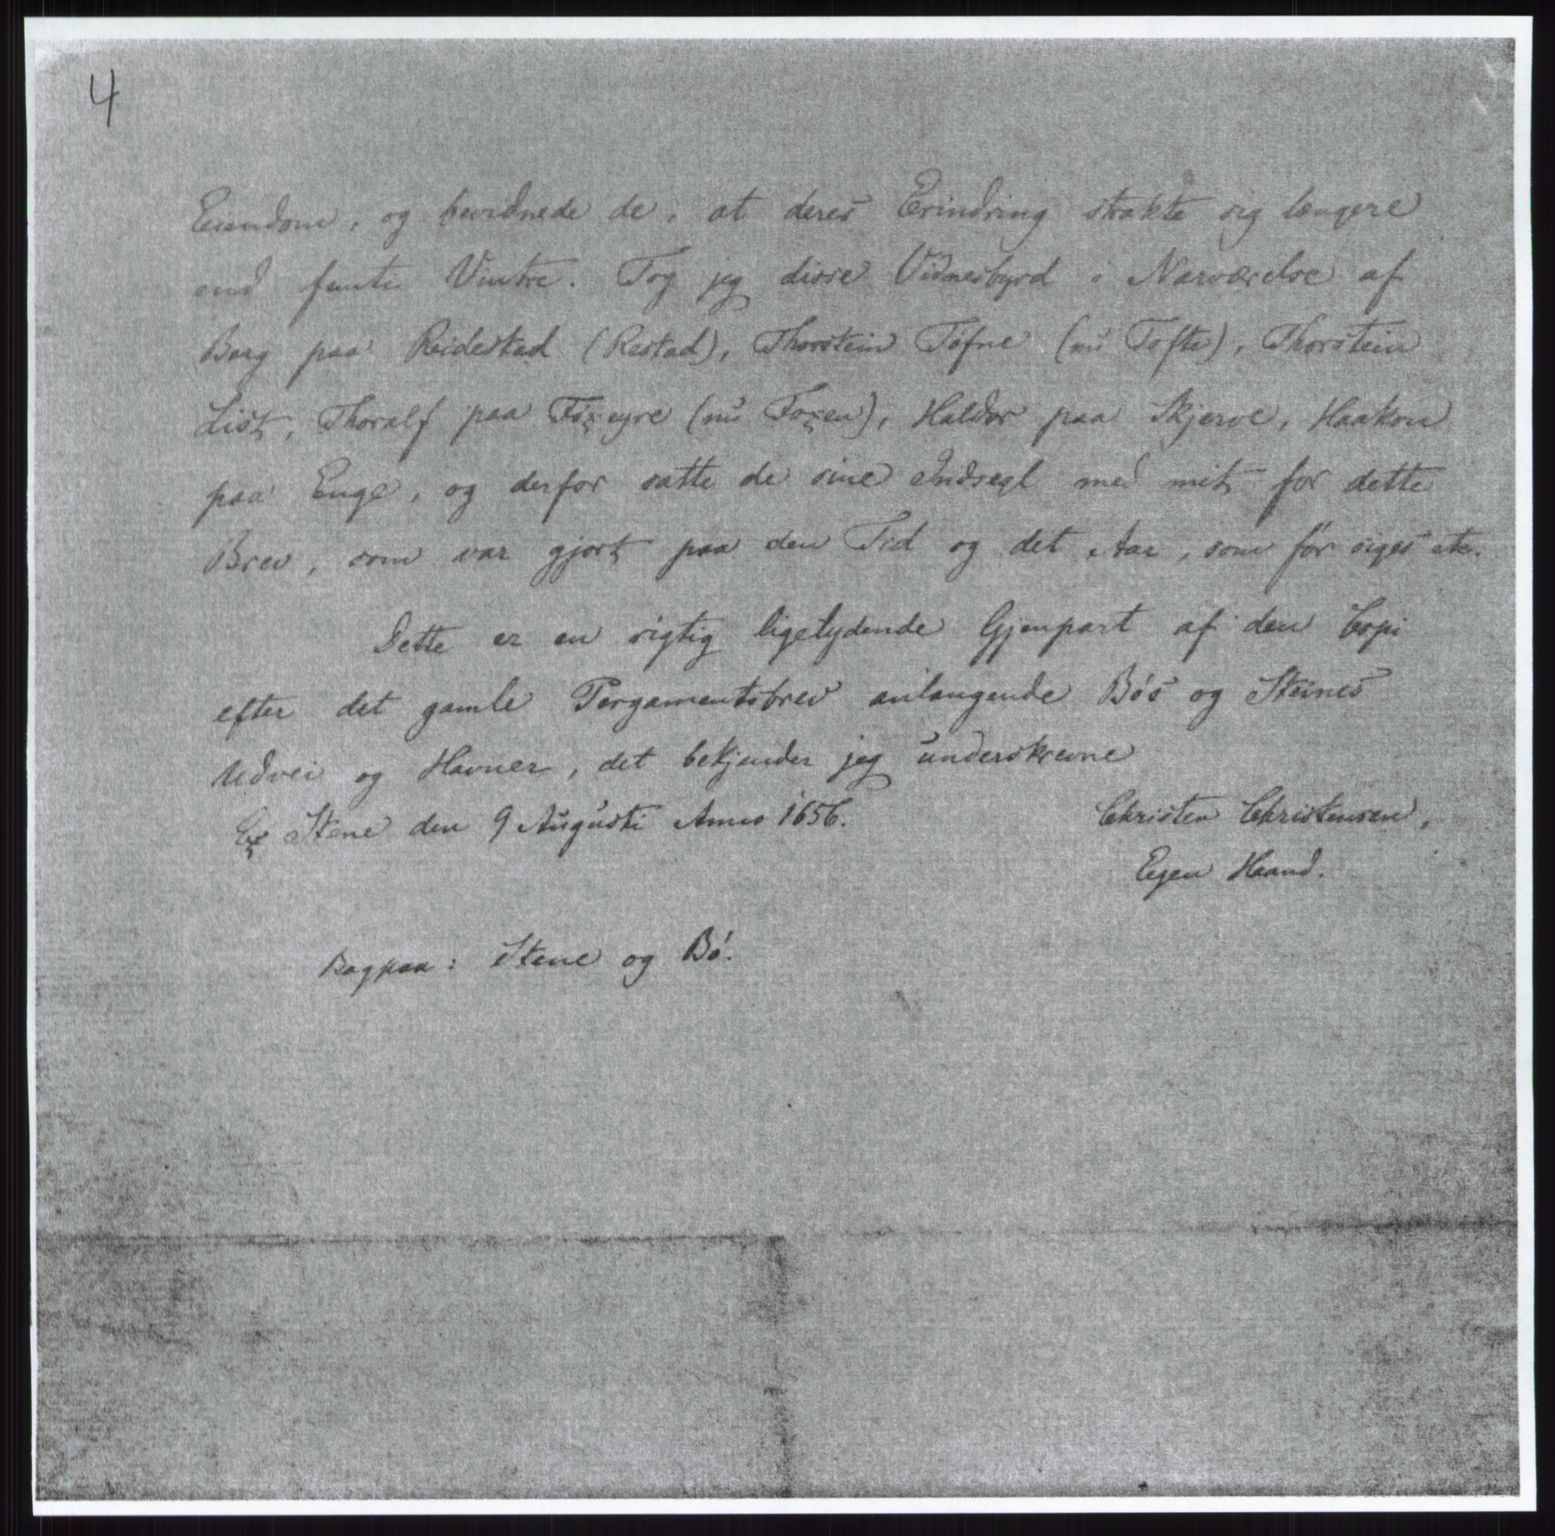 4
Eiendom, og bevidnede de, at deres Erindring strakte sig længere
end femti Vintre. Tog jeg disse Vidnesbyrd i Nærværelse af
Borg paa Reidestad (Restad), Thorstein Tófne (nú Tofte), Thorstein
List, Thoralf paa Foxeyre (nú Foxen), Haldor paa Skjerve, Haakon
paa Enge, og derfor satte de sine Indsegl med mit for dette
Brev, som var gjort paa den Tid og det Aar, som fór siges etc.
Dette er en rigtig ligelydende Gjenpart af den Copi
efter det gamle Pergamentsbrev anlangende Bós og Steines
Udvei og Havner, det bekjender jeg underskrevne
Ex Stene den 9 Augusti Anno 1656. Christen Christensen,
Egen Haand.
Bagpaa: Stene og Bó.